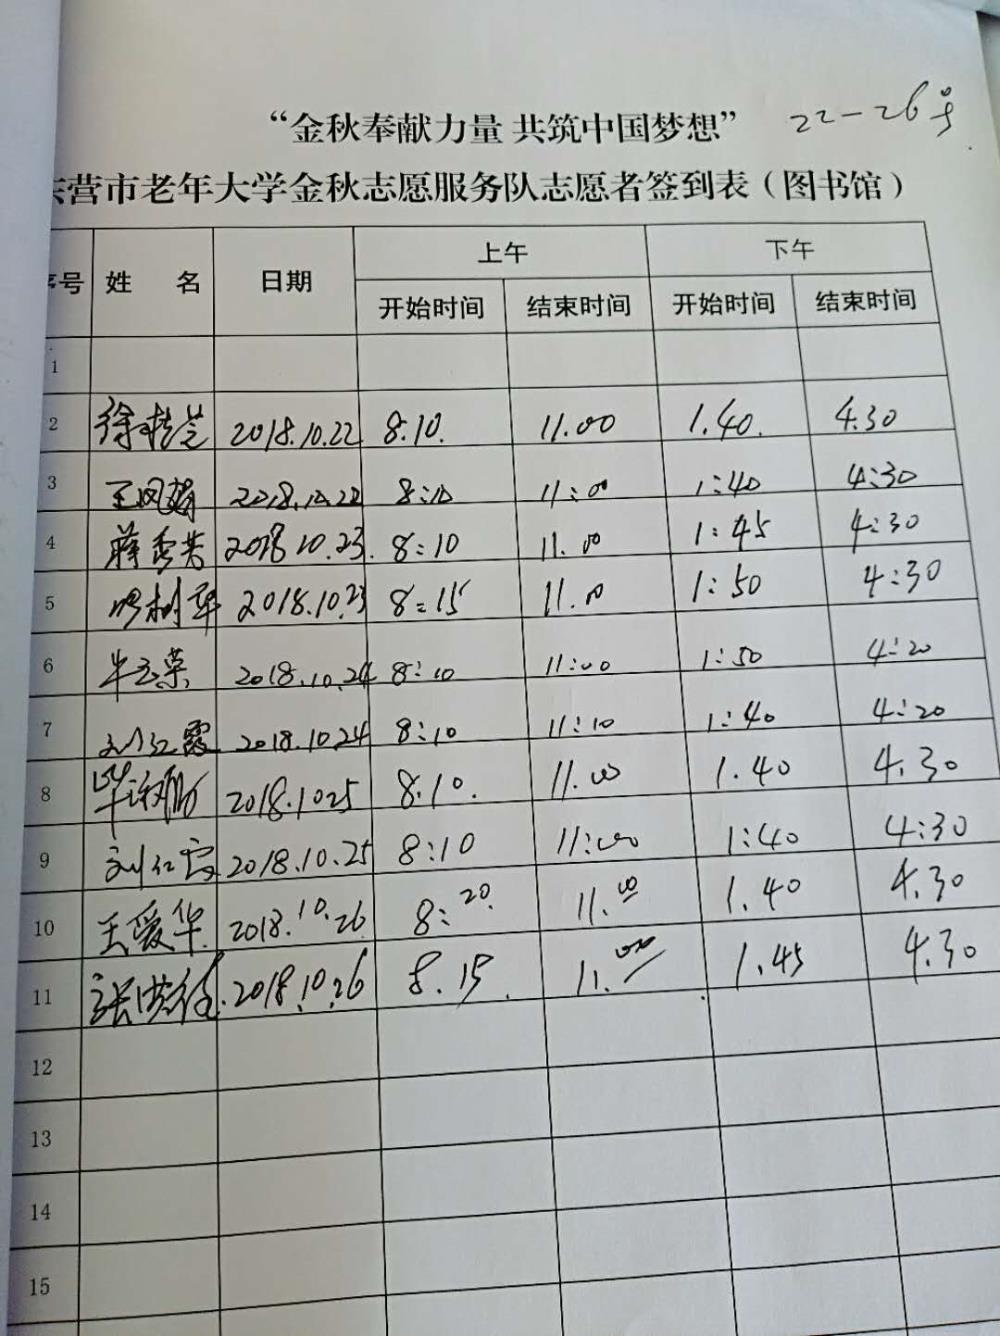 “金秋奉献力量 共筑中国梦想” 22-26号
东营市老年大学金秋志愿服务队志愿者签到表（图书馆）
序号 姓 名 日期 上午 下午
开始时间 结束时间 开始时间 结束时间
1
2 徐 2018.10.22 8:10. 11.00 1.40. 4.30
3 王凤 2018.10.22 8:10 11:00 1:40 4:30
4 蒋秀芳 2018 10.23. 8:10 11.00 1:45 4:30
5 树华 2018.10.23 8:15 11.00 1:50 4:30
6 牛云荣 2018.10.24 8:10 11:00 1:50 4:20
7 刘红霞 2018.10.24 8:10 11:10 1:40 4:20
8 毕 2018.1025 8.10. 11.00 1.40 4.30
9 刘红霞 2018.10.25 8:10 11:00 1:40 4:30
10 王爱华 2018.10.26 8:20. 11.00 1.40 4.30
11 张洪 2018.10.26 8.15. 11.00 1.45 4.30
12
13
14
15